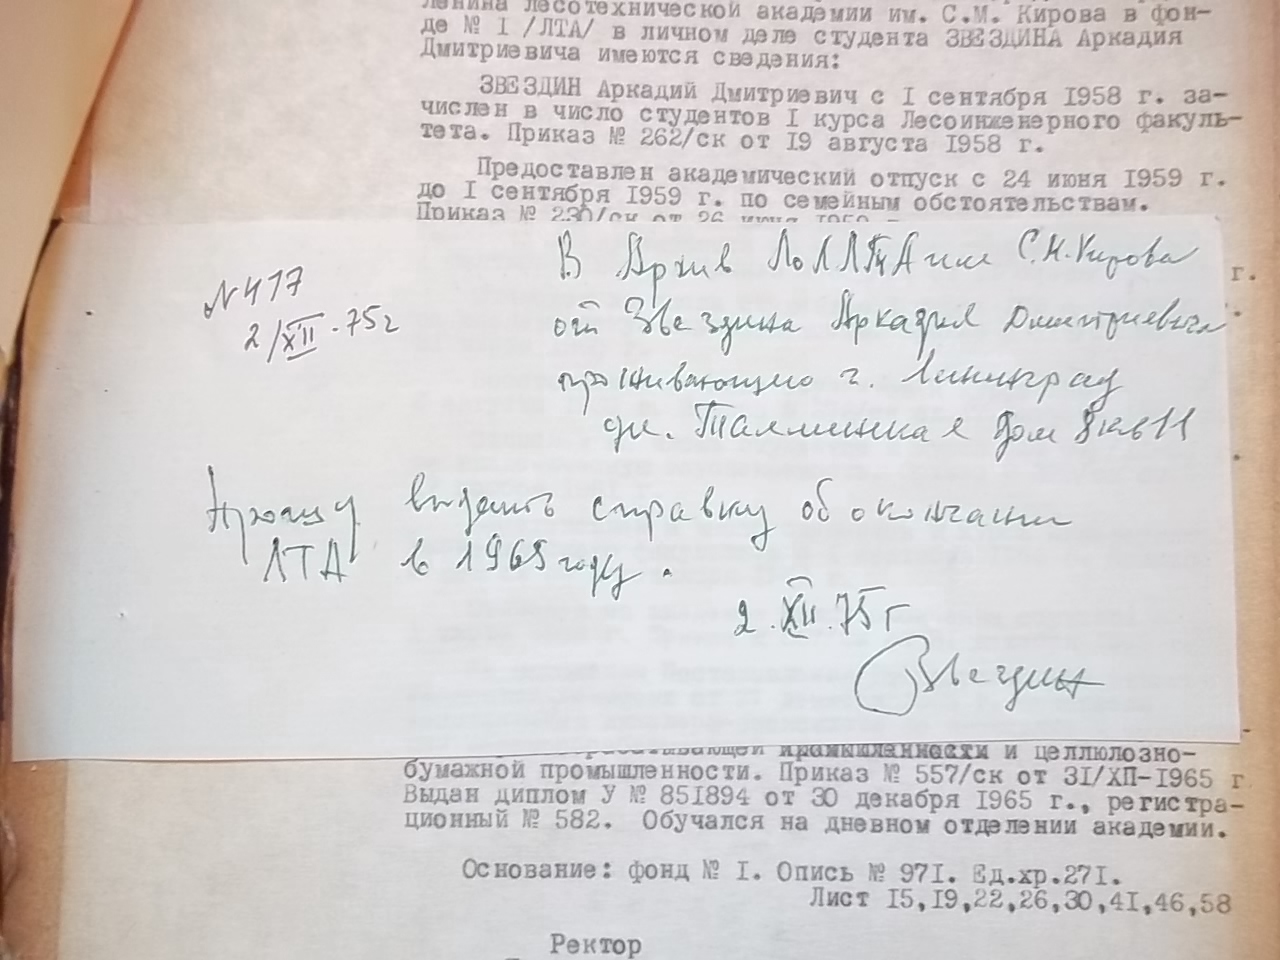 Ленина лесотехнической академии им. С.М. Кирова в фон-
де № I /ЛТА/ в личном деле студента ЗВЕЗДИНА Аркадия
Дмитриевича имеются сведения:
ЗВЕЗДИН Аркадий Дмитриевич с I сентября 1958 г. за-
числен в число студентов I курса Лесоинженерного факуль-
тета. Приказ № 262/ск от 19 августа 1958 г.
Предоставлен академический отпуск с 24 июня 1959 г.
до I сентября 1959 г. по семейным обстоятельствам.
Приказ № 230/ск от 26 июня 1959 г.
г.
№ 417
2/XII-75г
В Архив ЛоЛЛТА им С.М.Кирова
от Звездина Аркадия Дмитриевича
проживающего г. Ленинград
ул. Таллинская дом 8 кв 11
Прошу выдать справку об окончании
ЛТА в 1965 году.
2.XII.75г
Звездин
промышленности и целлюлозно-
бумажной промышленности. Приказ № 557/ск от 31/ХП-1965 г
Выдан диплом У № 851894 от 30 декабря 1965 г., регистра-
ционный № 582. Обучался на дневном отделении академии.
Основание: фонд № I. Опись № 971. Ед.хр.271.
Лист 15,19,22,26,30,41,46,58
Ректор